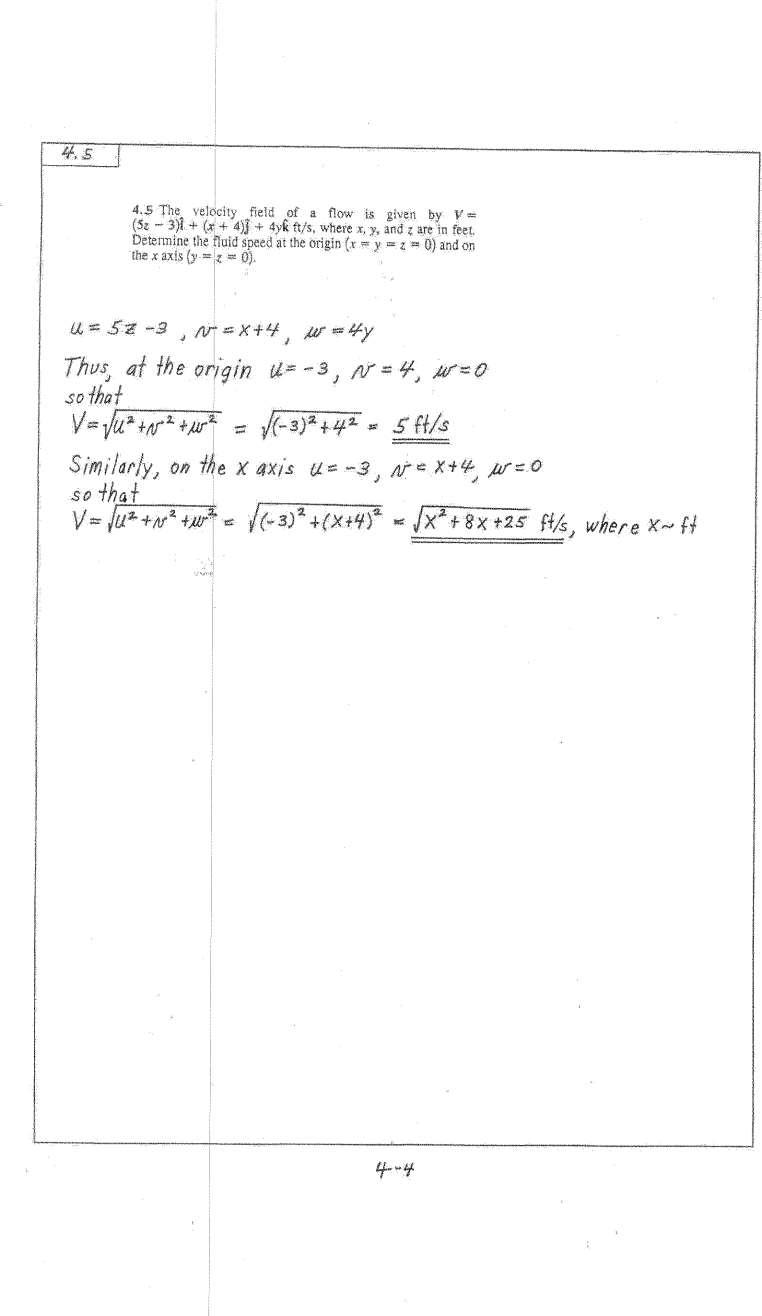 4.5
4.5 The velocity field of a flow is given by V =
(5z − 3)î + (x + 4)ĵ + 4yk̂ ft/s, where x, y, and z are in feet.
Determine the fluid speed at the origin (x = y = z = 0) and on
the x axis (y = z = 0).
u = 5z -3 , v = x+4 , w = 4y
Thus, at the origin u = -3 , v = 4 , w = 0
so that
V = √(u² + v² + w²) = √((-3)² + 4²) = 5 ft/s
Similarly, on the x axis u = -3 , v = x+4 , w = 0
so that
V = √(u² + v² + w²) = √((-3)² + (x+4)²) = √(x² + 8x + 25) ft/s, where x ~ ft
4--4